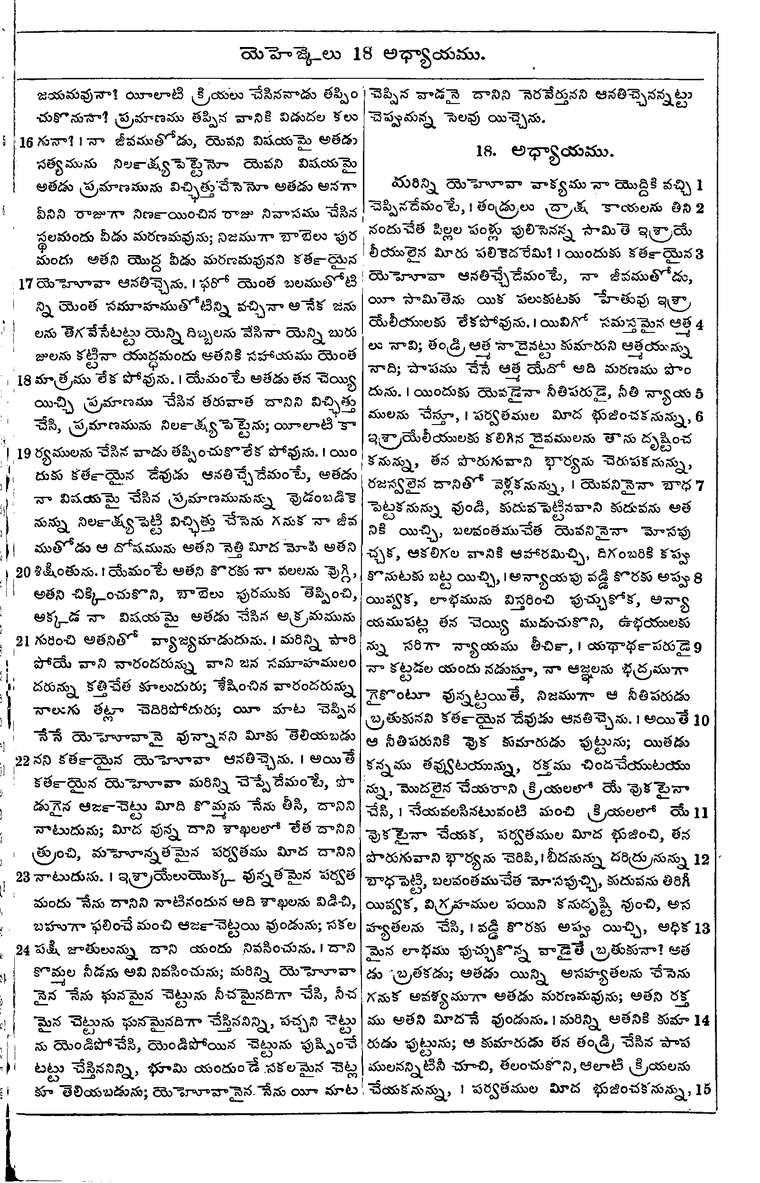 యెహెజ్కేలు 18 అధ్యాయము.
జయమవునా? యీలాటి క్రియలు చేసినవాడు తప్పిం
చుకొనునా? ప్రమాణము తప్పిన వానికి విడుదల కలు
16 గునా? । నా జీవముతోడు, యెవని విషయమై అతడు
సత్యమును నిలర్క్ష్యపెట్టెనో యెవని విషయమై
అతడు ప్రమాణమును విచ్ఛిత్తుచేసెనో అతడు అనగా
వీనిని రాజుగా నిర్ణయించిన రాజు నివాసము చేసిన
స్థలమందు వీడు మరణమవును; నిజముగా బాబేలు పుర
మందు అతని యొద్ద వీడు మరణమవునని కర్తయైన
17 యెహోవా ఆనతిచ్చేను. । ఫరో యెంత బలముతోటి
న్ని యెంత సమూహముతోటిన్ని వచ్చినా అనేక జను
లను తెగవేసేటట్టు యెన్ని దిబ్బలను వేసినా యెన్ని బురు
జులను కట్టినా యుద్ధమందు అతనికి సహాయము యెంత
18 మాత్రము లేక పోవును. । యేమంటే అతడు తన చెయ్యి
యిచ్చి ప్రమాణము చేసిన తరువాత దానిని విచ్ఛిత్తు
చేసి, ప్రమాణమును నిలర్క్ష్యపెట్టెను; యీలాటి కా
19 ర్యములను చేసిన వాడు తప్పించుకొలేక పోవును. । యిం
దుకు కర్తయైన దేవుడు ఆనతిచ్చేదేమంటే, అతడు
నా విషయమై చేసిన ప్రమాణమునున్ను వుడంబడికె
నున్ను నిలర్క్ష్యపెట్టి విచ్ఛిత్తు చేసెను గనుక నా జీవ
ముతోడు ఆ దోషమును అతని నెత్తి మీద మోపి అతని
20 శిక్షింతును. । యేమంటే అతని కొరకు నా వలలను వొగ్గి,
అతని చిక్కించుకొని, బాబేలు పురముకు తెప్పించి,
అక్కడ నా విషయమై అతడు చేసిన అక్రమమును
21 గురించి అతనితో వ్యాజ్యమాడుదును. । మరిన్ని పారి
పోయే వాని వారందరున్ను వాని జన సమూహములం
దరున్ను కత్తిచేత కూలుదురు; శేషించిన వారందరున్ను
నాలుగు తట్లా చెదిరిపోదురు; యీ మాట చెప్పిన
నేనే యెహోవానై వున్నానని మీకు తెలియబడు
22 నని కర్తయైన యెహోవా ఆనతిచ్చెను. । అయితే
కర్తయైన యెహోవా మరిన్ని చెప్పేదేమంటే, పొ
డుగైన ఆర్జచెట్టు మీది కొమ్మను నేను తీసి, దానిని
నాటుదును; మీద వున్న దాని శాఖలలో లేత దానిని
త్రుంచి, మహోన్నతమైన పర్వతము మీద దానిని
23 నాటుదును. । ఇశ్రాయేలుయొక్క వున్నతమైన పర్వత
మందు నేను దానిని నాటినందున అది శాఖలను విడిచి,
బహుగా ఫలించే మంచి ఆర్జచెట్టయి వుండును; సకల
24 పక్షి జాతులున్ను దాని యందు నివసించును. । దాని
కొమ్మల నీడను అవి నివసించును; మరిన్ని యెహోవా
నైన నేను ఘనమైన చెట్టును నీచమైనదిగా చేసి, నీచ
మైన చెట్టును ఘనమైనదిగా చేస్తిననిన్ని, పచ్చని చెట్టు
ను యెండిపోచేసి, యెండిపోయిన చెట్టును పుష్పించే
టట్టు చేస్తిననిన్ని, భూమి యందుండే సకలమైన చెట్ల
కూ తెలియబడును; యెహోవానైన నేను యీ మాట
చెప్పిన వాడనై దానిని నెరవేర్తునని ఆనతిచ్చెనన్నట్టు
చెప్పుమన్న సెలవు యిచ్చెను.
18. అధ్యాయము.
మరిన్ని యెహోవా వాక్యము నా యొద్దికి వచ్చి 1
చెప్పినదేమంటే, । తండ్రులు ద్రాక్ష కాయలను తిని 2
నందుచేత పిల్లల పండ్లు పులిసెనన్న సామితె ఇశ్రాయే
లీయులైన మీరు పలికెదరేమి? । యిందుకు కర్తయైన 3
యెహోవా ఆనతిచ్చేదేమంటే, నా జీవముతోడు,
యీ సామితెను యిక పలుకుటకు హేతువు ఇశ్రా
యేలీయులకు లేకపోవును. । యివిగో సమస్తమైన ఆత్మ 4
లు నావి; తండ్రి ఆత్మ నాదైనట్టు కుమారుని ఆత్మయున్ను
నాది; పాపము చేసే ఆత్మ యేదో అది మరణము పొం
దును. । యిందుకు యెవడైనా నీతిపరుడై, నీతి న్యాయ 5
ములను చేస్తూ, । పర్వతముల మీద భుజించకనున్ను, 6
ఇశ్రాయేలీయులకు కలిగిన దైవములను తాను దృష్టించ
కనున్ను, తన పొరుగువాని భార్యను చెరుపకనున్ను,
రజస్వలైన దానితో వెళ్లకనున్ను, । యెవనినైనా బాధ 7
పెట్టకనున్ను వుండి, కుదువపెట్టినవాని కుదువను అత
నికి యిచ్చి, బలవంతముచేత యెవనినైనా మోసపు
చ్చక, ఆకలిగల వానికి ఆహారమిచ్చి, దిగంబరికి కప్పు
కొనుటకు బట్ట యిచ్చి, । అన్యాయపు వడ్డి కొరకు అప్పు 8
యివ్వక, లాభమును విస్తరించి పుచ్చుకోక, అన్యా
యముపట్ల తన చెయ్యి ముడుచుకొని, ఉభయులకు
న్ను సరిగా న్యాయము తీర్చి, । యథార్థపరుడై 9
నా కట్టడల యందు నడుస్తూ, నా ఆజ్ఞలను భద్రముగా
గైకొంటూ వున్నట్టయితే, నిజముగా ఆ నీతిపరుడు
బ్రతుకునని కర్తయైన దేవుడు ఆనతిచ్చెను. । అయితే 10
ఆ నీతిపరునికి వొక కుమారుడు పుట్టును; యితడు
కన్నము తవ్వుటయున్ను, రక్తము చిందచేయుటయు
న్ను, మొదలైన చేయరాని క్రియలలో యే వొకటైనా
చేసి, । చేయవలసినటువంటి మంచి క్రియలలో యే 11
వొకటైనా చేయక, పర్వతముల మీద భుజించి, తన
పొరుగువాని భార్యను చెరిపి, । బీదనున్ను దరిద్రునున్ను 12
బాధపెట్టి, బలవంతముచేత మోసపుచ్చి, కుదువను తిరిగీ
యివ్వక, విగ్రహముల పయిని కనుదృష్టి వుంచి, అస
హ్యతలను చేసి, । వడ్డి కొరకు అప్పు యిచ్చి, అధిక 13
మైన లాభము పుచ్చుకొన్న వాడైతే బ్రతుకునా? అత
డు బ్రతకడు; అతడు యిన్ని అసహ్యతలను చేసెను
గనుక అవశ్యముగా అతడు మరణమవును; అతని రక్త
ము అతని మీదనే వుండును. । మరిన్ని అతనికి కుమా 14
రుడు పుట్టును; ఆ కుమారుడు తన తండ్రి చేసిన పాప
ములనన్నిటినీ చూచి, తలంచుకొని, ఆలాటి క్రియలను
చేయకనున్ను, । పర్వతముల మీద భుజించకనున్ను, 15